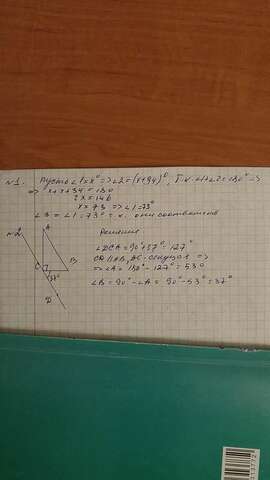 №1. Пусть ∠1=x° => ∠2=(x+34)°, т.к. ∠1+∠2=180° =>
=> x+x+34=180
2x=146
x=73 => ∠1=73°
∠3=∠1=73° т.к. они соответств
№2
A
Решение
∠DCA=90°+37°=127°
CD∥AB, AC-секущая =>
=> ∠A=180°-127°=53°
∠B=90°-∠A=90°-53°=37°
C
37°
B
D